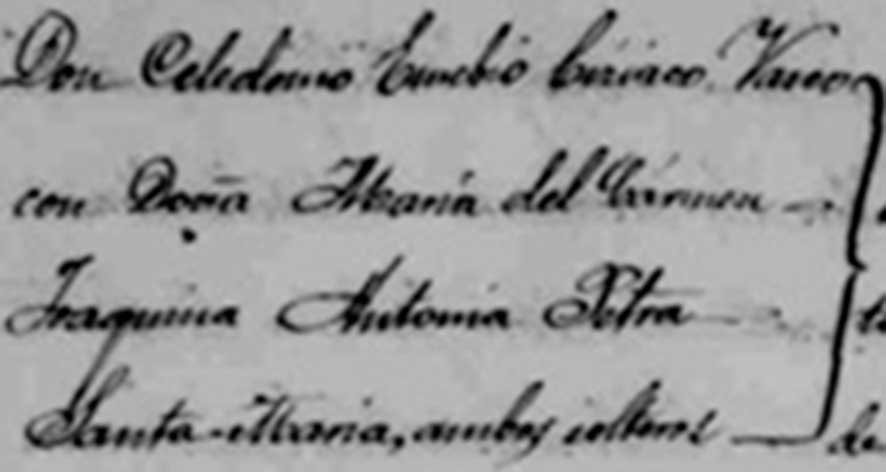 Don Celedonio Eusebio Ciriaco Vasco
con Doña Maria del Cármen
Joaquina Antonia Petra
Santa-Maria, ambos solteros de